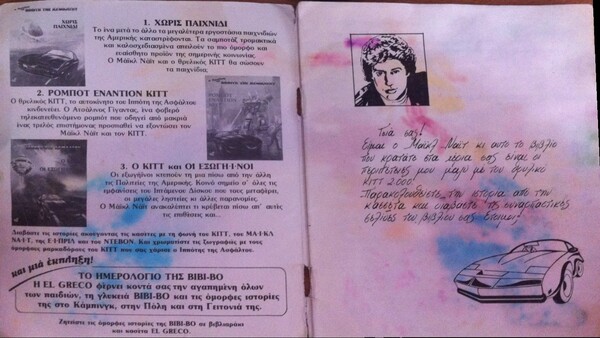 1. ΧΩΡΙΣ ΠΑΙΧΝΙΔΙ
Το ίνα μετά το άλλο τα μεγαλύτερα εργοστάσια παιχνιδιών
της Αμερικής καταστρέφονται. Τα σαμποτάζ τρομακτικά
και καλοσχεδιασμένα απειλούν το πιο όμορφο και
ευαίσθητο προϊόν της σημερινής κοινωνίας.
Ο Μάικλ Νάιτ και ο θρυλικός ΚΙΤΤ θα σώσουν
τα παιχνίδια;
2. ΡΟΜΠΟΤ ΕΝΑΝΤΙΟΝ ΚΙΤΤ
Ο θρυλικός ΚΙΤΤ, το αυτοκίνητο του Ιππότη της Ασφάλτου
κινδυνεύει. Ο Ατσάλινος Γίγαντας, ένα φοβερό
τηλεκατευθυνόμενο ρομπότ που οδηγεί από μακριά
ένας τρελός επιστήμονας προσπαθεί να εξοντώσει τον
Μάικλ Νάιτ και τον ΚΙΤΤ.
3. Ο ΚΙΤΤ και ΟΙ ΕΞΩΓΗ·Ι·ΝΟΙ
Οι εξωγήινοι κτυπούν τη μια πίσω από την άλλη
τις Πολιτείες της Αμερικής. Κοινό σημείο σ' όλες τις
εμφανίσεις του Ιπτάμενου Δίσκου που τους μεταφέρει,
οι μεγάλες ληστείες κι άλλες παρανομίες.
Ο Μάικλ Νάιτ ανακαλύπτει τι κρύβεται πίσω απ' αυτές
τις επιθέσεις και...
Διαβάστε τις ιστορίες ακούγοντας τις κασέτες με τη φωνή του ΚΙΤΤ, του ΜΑ·Ι·ΚΛ
ΝΑ·Ι·Τ, της Ε·Ι·ΠΡΙΛ και του ΝΤΕΒΟΝ. Και χρωματίστε τις ζωγραφιές με τους
όμορφους μαρκαδόρους του ΚΙΤΤ που σας χάρισε ο Ιππότης της Ασφάλτου.
και μιά έκπληξη!
ΤΟ ΗΜΕΡΟΛΟΓΙΟ ΤΗΣ ΒΙΒΙ-ΒΟ
Η EL GRECO φέρνει κοντά σας την αγαπημένη όλων
των παιδιών, τη γλυκειά ΒΙΒΙ-ΒΟ και τις όμορφες ιστορίες
της στο Κάμπινγκ, στην Πόλη και στη Γειτονιά της.
Ζητείστε τις όμορφες ιστορίες της ΒΙΒΙ-ΒΟ σε βιβλιαράκι
και κασέτα EL GRECO.
Γειά σας!
Είμαι ο Μάικλ Νάιτ κι αυτό το βιβλίο
που κρατάτε στα χέρια σας είναι οι
περιπέτειές μου μαζί με τον θρυλικό
ΚΙΤΤ 2.000!
Παρακολουθείστε την ιστορία από την
κασέττα και διαβάστε τις συναρπαστικές
σελίδες του βιβλίου σας. Έτοιμοι!